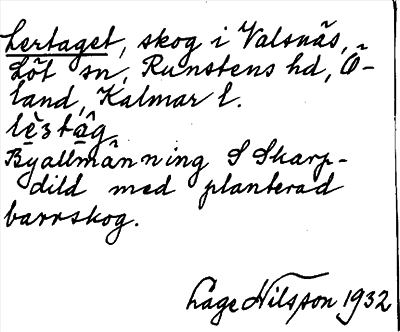 Lertaget, skog i Valsnäs,
Löt sn, Runstens hd, Ö-
land, Kalmar l.
lèstâg
Byallmänning S Skarp-
dild med planterad
barrskog.
Lage Nilsson 1932